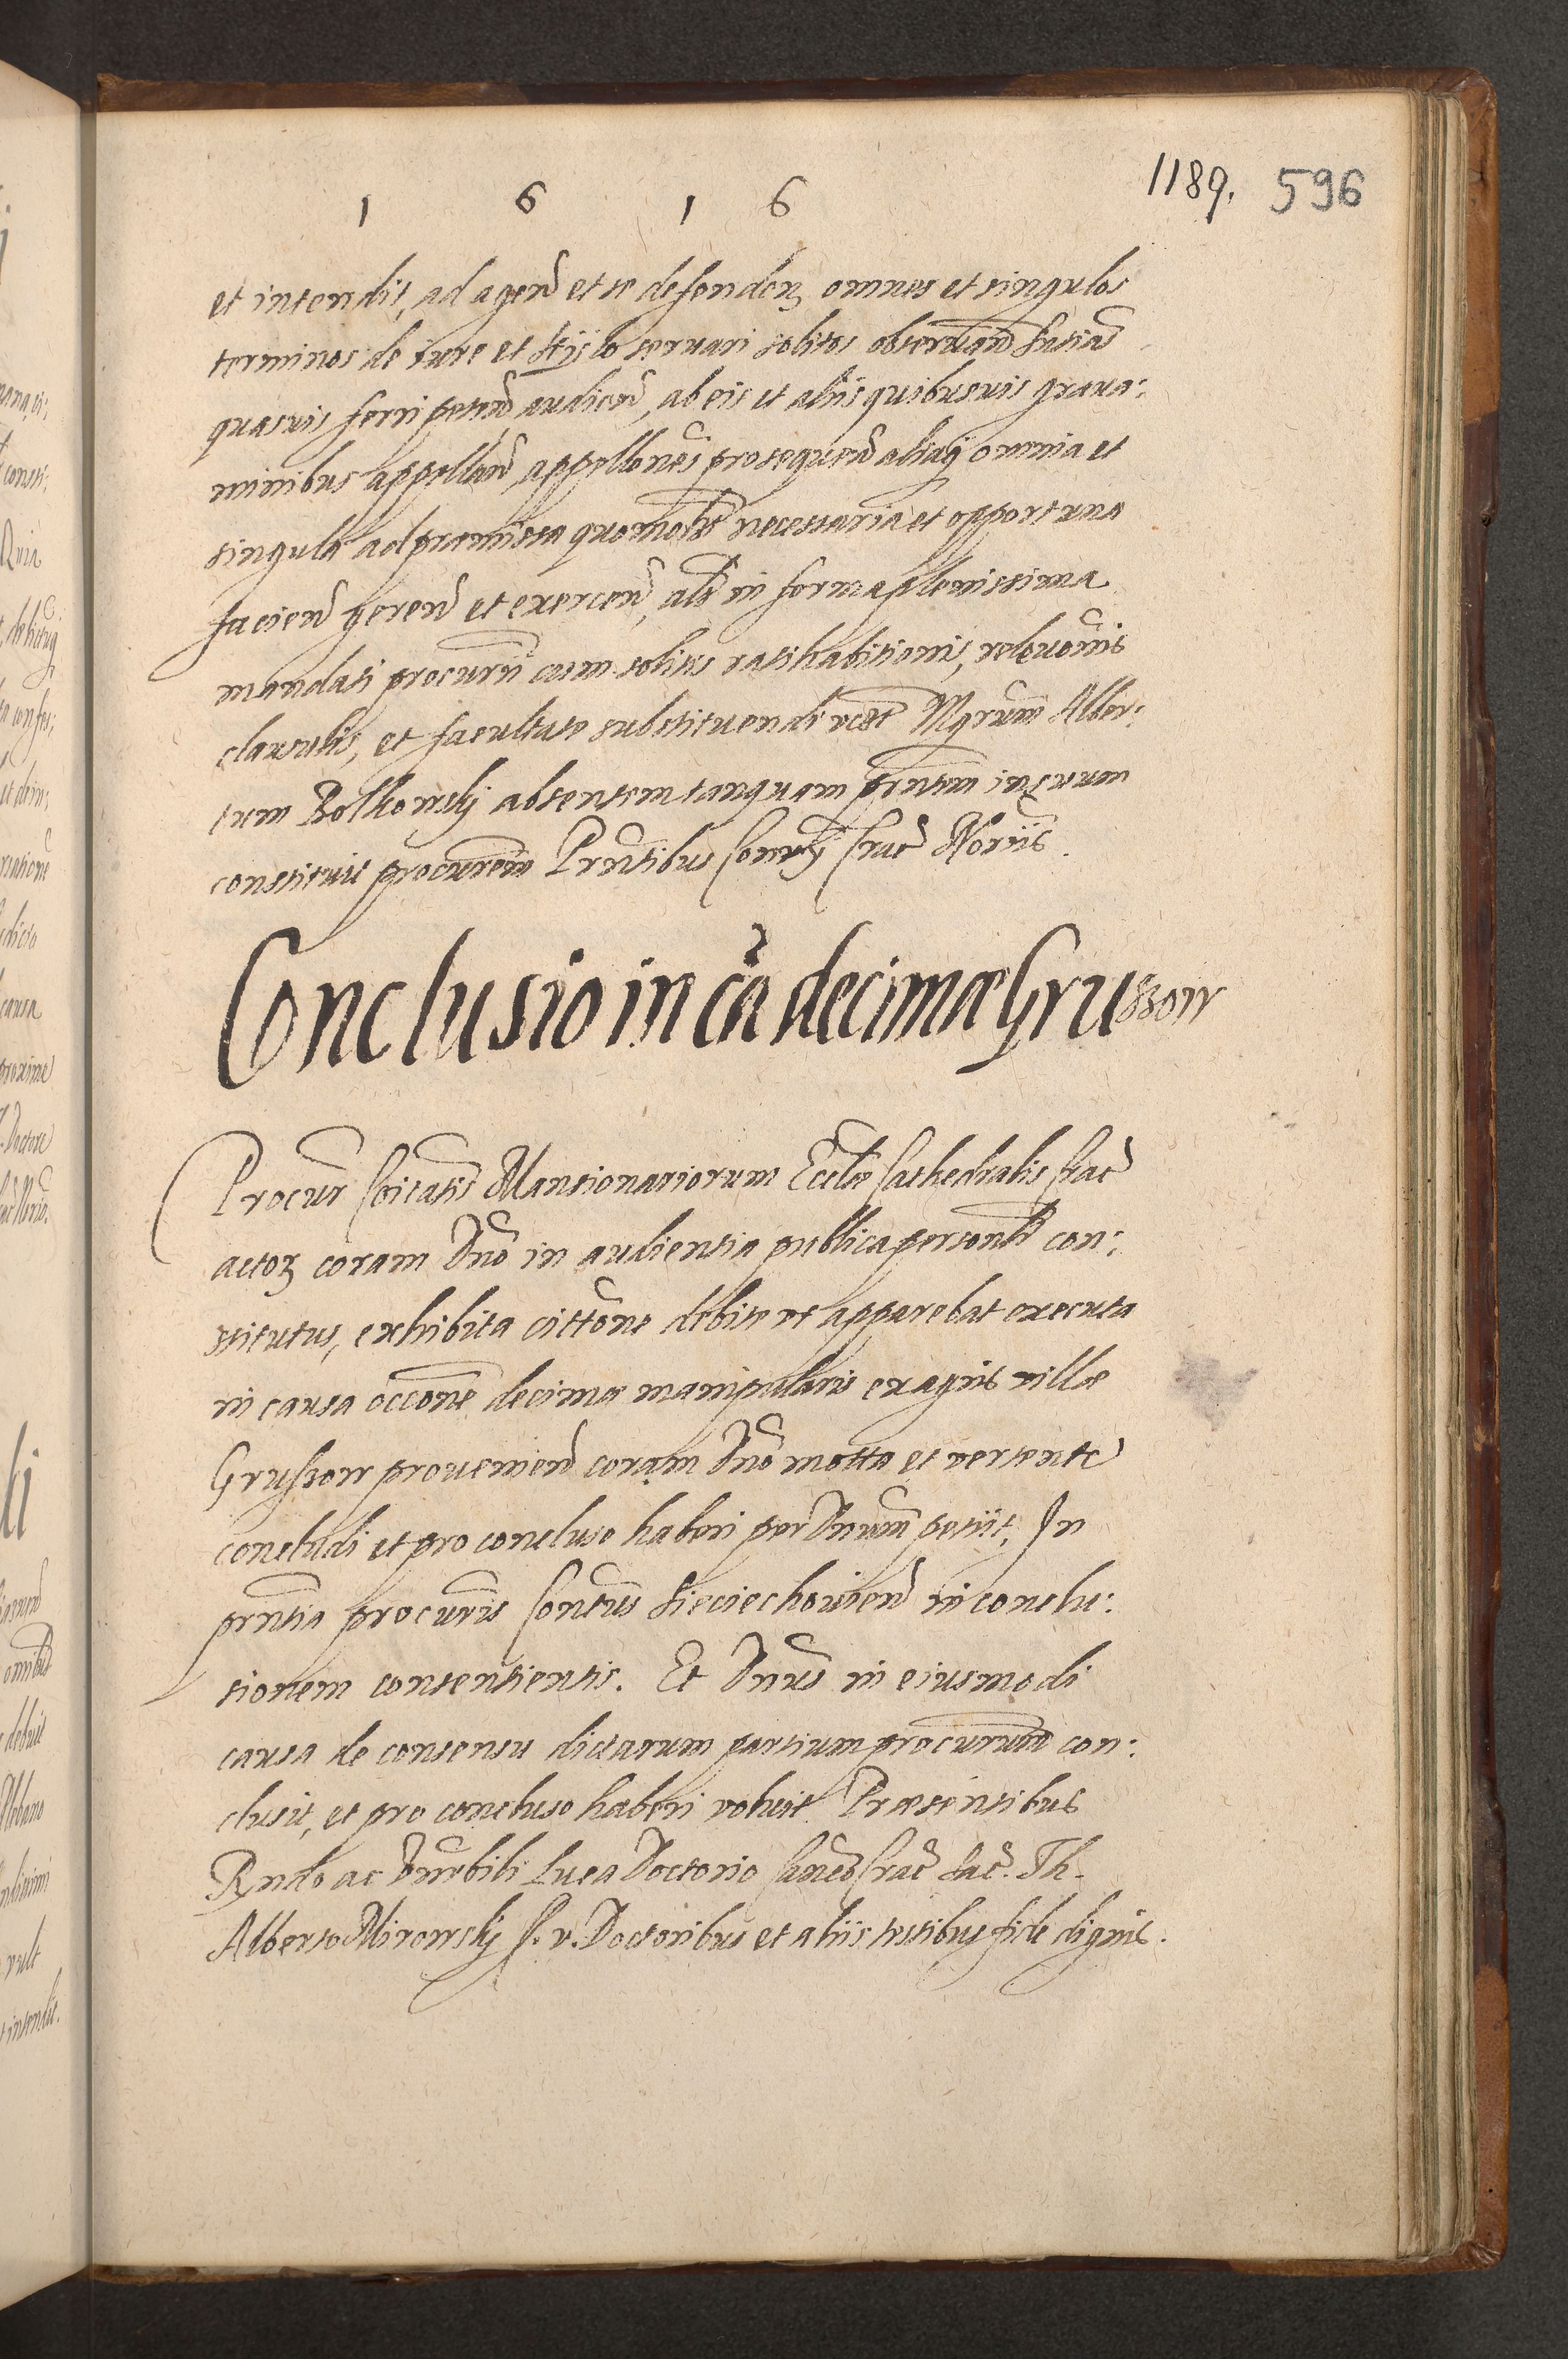 1189. 596
1 6 1 6
et intendit, ad agend et se defenden omnes et singulos
terminos de iure et stijlo seruari solitos obseruand sntias
quasuis ferri petend audiend, ab eis et aliis quibusuis graua:
minibus appelland appellones prosequend aliaq omnia et
singula ad præmissa quomolt necessaria et opportuna
faciend gerend et exercend, als in forma plenissima
mandati procurii cum solitis ratihabitionis, releuonis
clausulis, et facultate substituendi vest Mgrum Alber:
tum Bolkowskj absentem tanquam prntem in suum
constituit procurem Prntibus Crac Noriis.
Conclusio in ca decimæ Grusszow
Procur Coitatis Mansionariorum Ecclæ Cathedralis Crac
actor coram Dno in audientia publica personlr con:
stitutus, exhibita cittone debite vt apparebat executa
in causa occone decimæ manipularis ex agris villæ
Gruszow proueniend coram Dno motta et vertente
concludi et pro concluso haberi per Dnum petiit, In
prntia procuris Contus Sieciechouien in conclu:
sionem consentientis. Et Dnus in eiusmodi
causa de consensu dictarum partium procurum con:
clusit, et pro concluso haberi voluit. Præsentibus
Rndo ac Luca Doctorio Canco Crac Sac. Th.
Alberto Mirowskj J. v. Doctoribus et aliis testibus fide dignis.